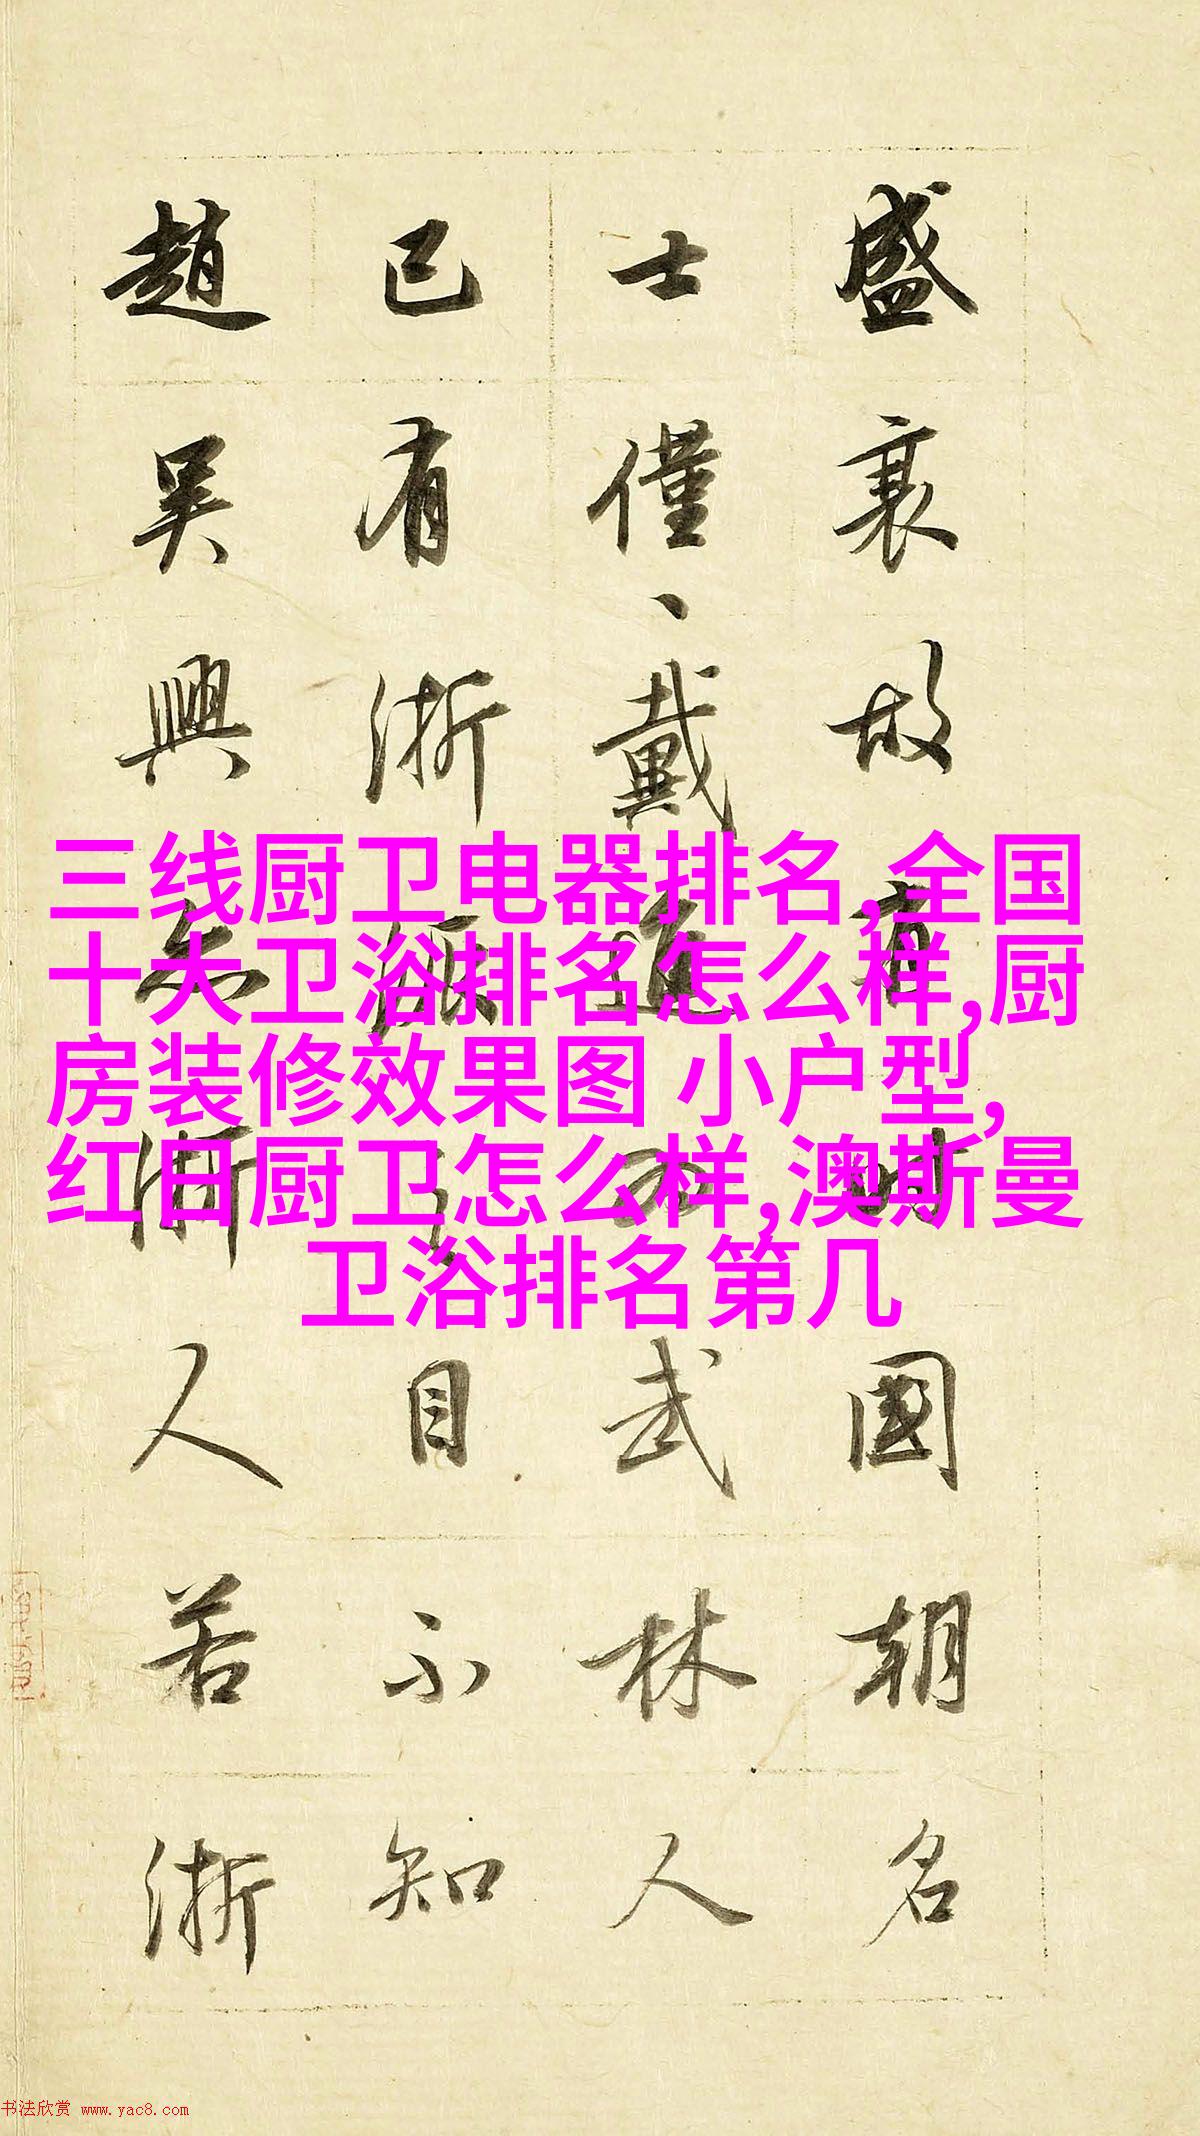 盛衰故有時國朝名
士僅、戴進為武林人
已有浙派之目不知
趙吳興亦浙人若浙
三线厨卫电器排名,全国
十大卫浴排名怎么样,厨
房装修效果图 小户型,
红日厨卫怎么样,澳斯曼
卫浴排名第几
书法欣赏 www.yac8.com